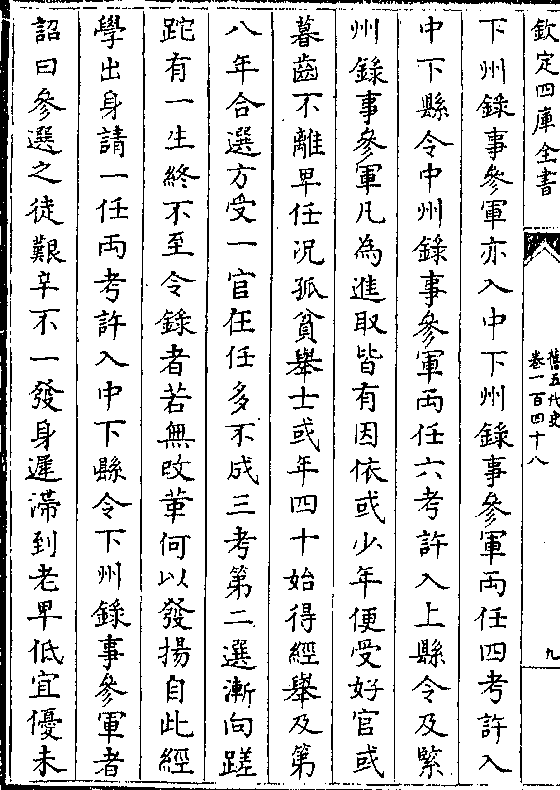 欽定四庫全書
舊五代史
卷一百四十八
九
下州錄事參軍亦入中下州錄事參軍両任四考許入
中下縣令中州錄事參軍両任六考許入上縣令及緊
州錄事參軍凡為進取皆有因依或少年便受好官或
暮齒不離卑任況孤貧舉士或年四十始得經舉及第
八年合選方受一官在任多不成三考第二選漸向蹉
跎有一生終不至令錄者若無改革何以發揚自此經
學出身請一任両考許入中下縣令下州錄事參軍者
詔曰參選之徒艱辛不一發身遲滯到老卑低宜優未